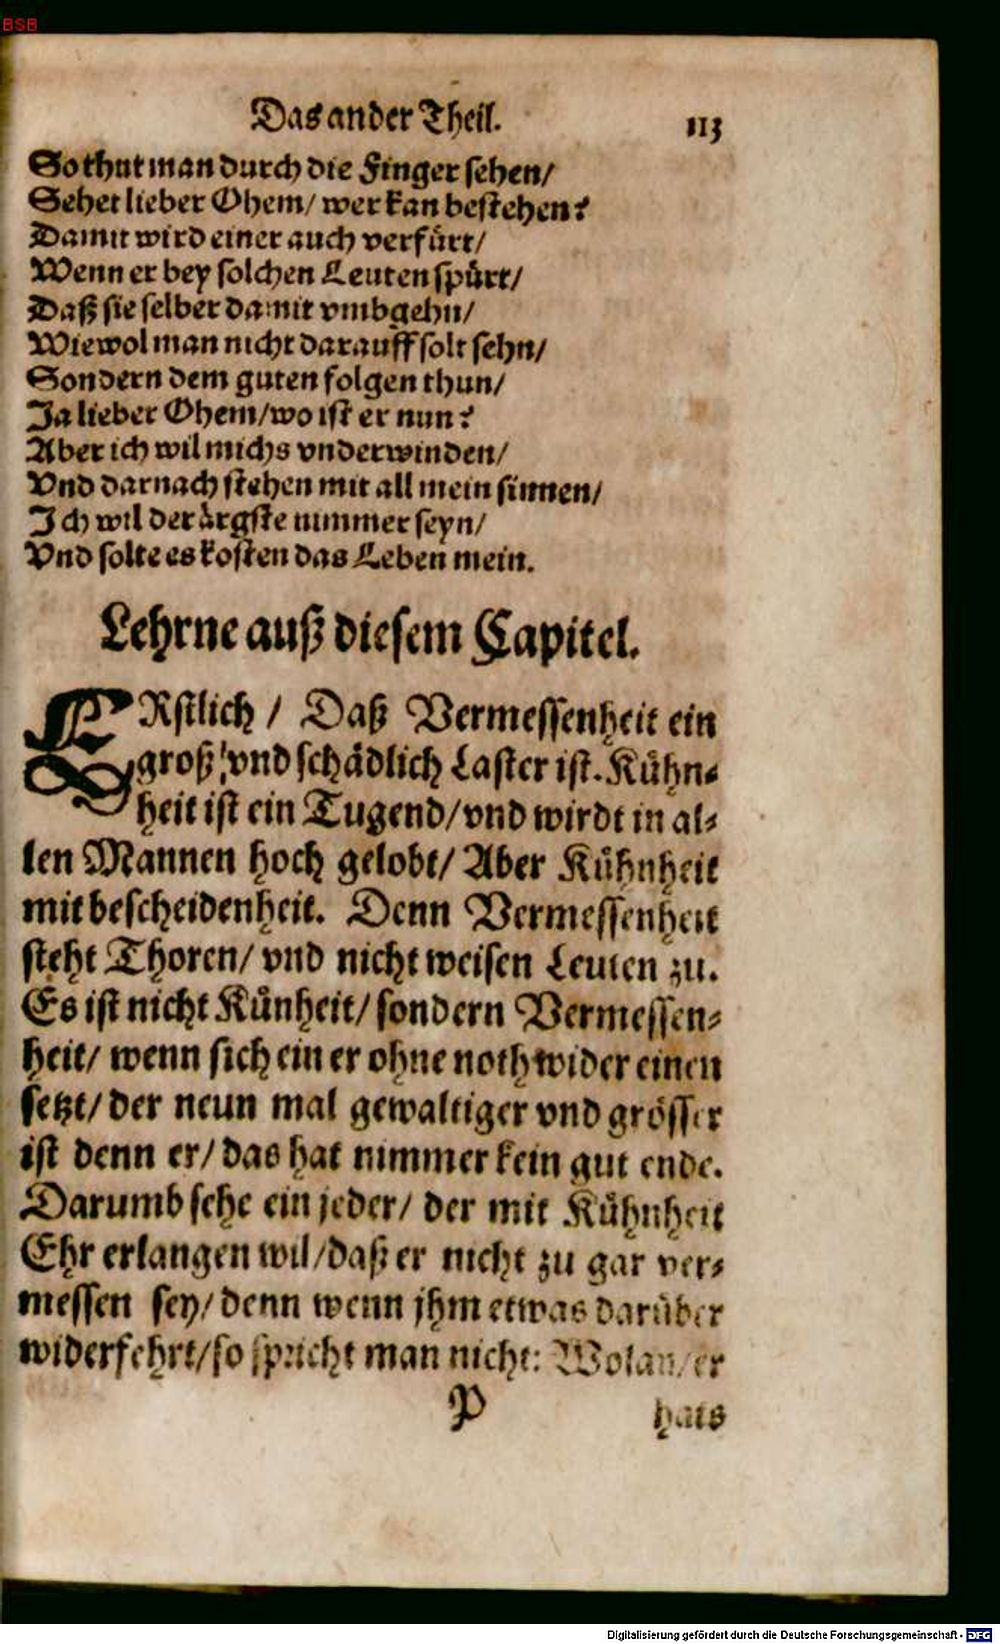 BSB
Das ander Theil. 113
So thut man durch die Finger sehen/
Sehet lieber Ohem/ wer kan bestehen?
Damit wird einer auch verfürt/
Wenn er bey solchen Leuten spürt/
Daß sie selber damit vmbgehn/
Wiewol man nicht darauff solt sehn/
Sondern dem guten folgen thun/
Ja lieber Ohem/ wo ist er nun?
Aber ich wil michs vnderwinden/
Vnd darnach stehen mit all mein sinnen/
Ich wil der ärgste nimmer seyn/
Vnd solte es kosten das Leben mein.
Lehrne auß diesem Capitel.
ERstlich / Daß Vermessenheit ein
groß vnd schädlich Laster ist. Kühn-
heit ist ein Tugend/ vnd wirdt in al-
len Mannen hoch gelobt/ Aber Kühnheit
mit bescheidenheit. Denn Vermessenheit
steht Thoren/ vnd nicht weisen Leuten zu.
Es ist nicht Künheit/ sondern Vermessen-
heit/ wenn sich einer ohne noth wider einen
setzt/ der neun mal gewaltiger vnd grösser
ist denn er/ das hat nimmer kein gut ende.
Darumb sehe ein jeder/ der mit Kühnheit
Ehr erlangen wil/ daß er nicht zu gar ver-
messen sey/ denn wenn jhm etwas darüber
widerfehrt/ so spricht man nicht: Wolan/ er
P hats
Digitalisierung gefördert durch die Deutsche Forschungsgemeinschaft - DFG